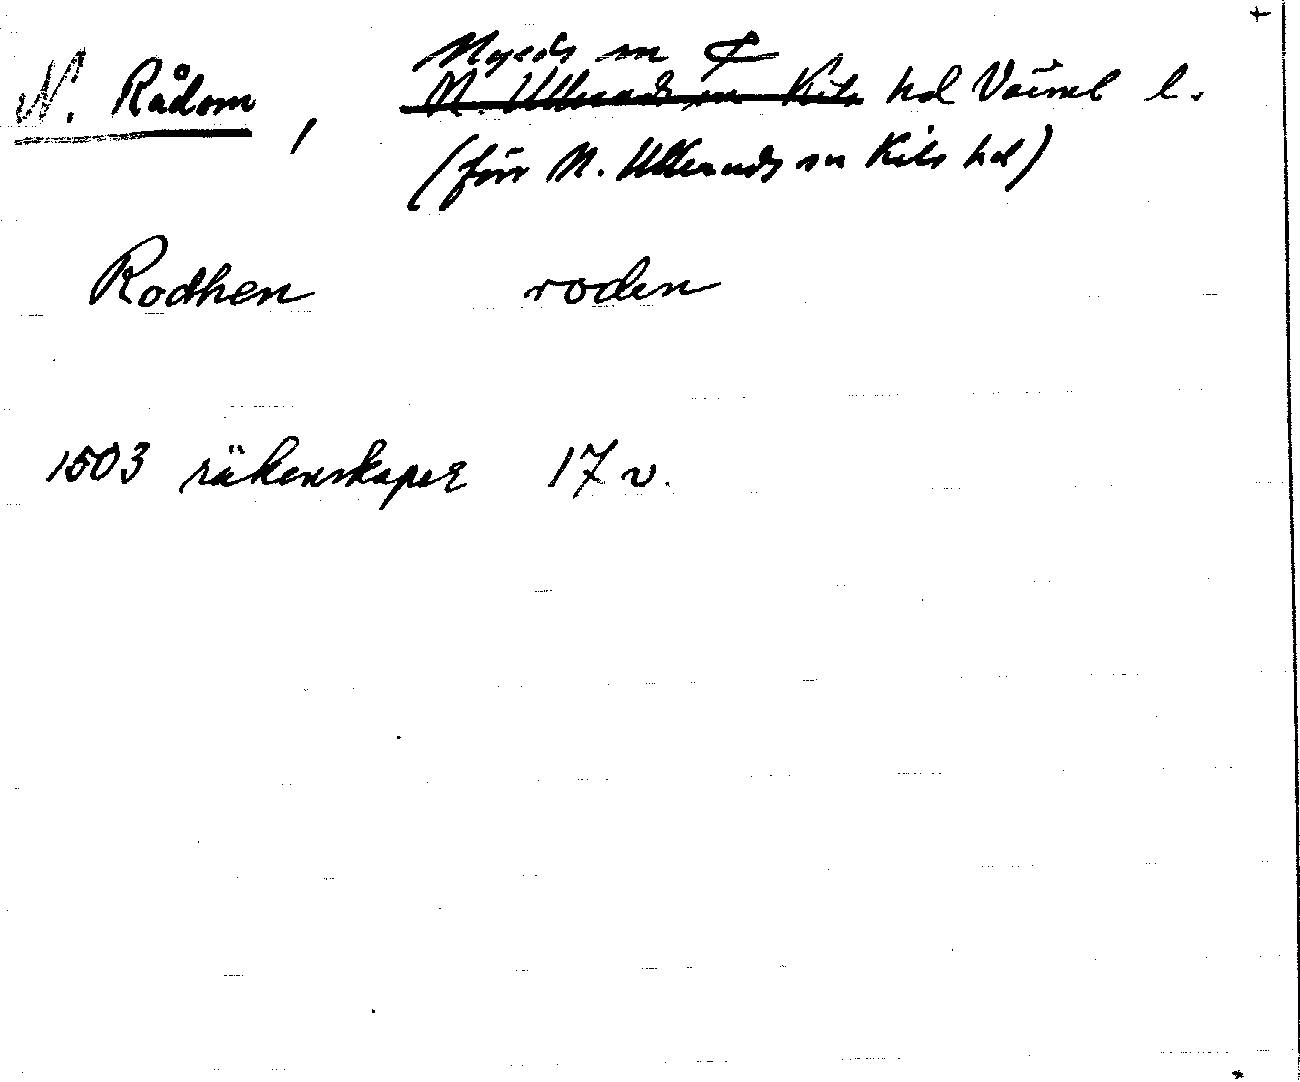 Nyeds sn
N. Rådom, N. Ulleruds sn Kils hd Värml l.
(förr N. Ulleruds sn Kils hd)
Rodhen roden
1503 räkenskaper 17 v.